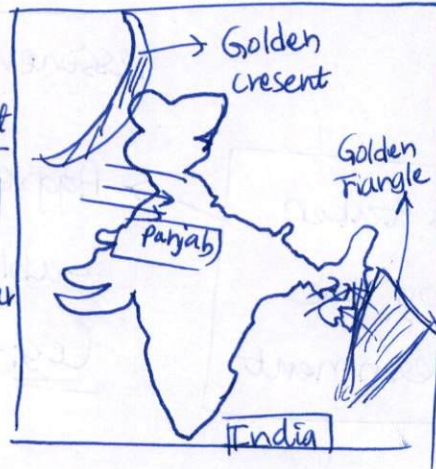 Golden
cresent
Golden
Triangle
Panjab
India